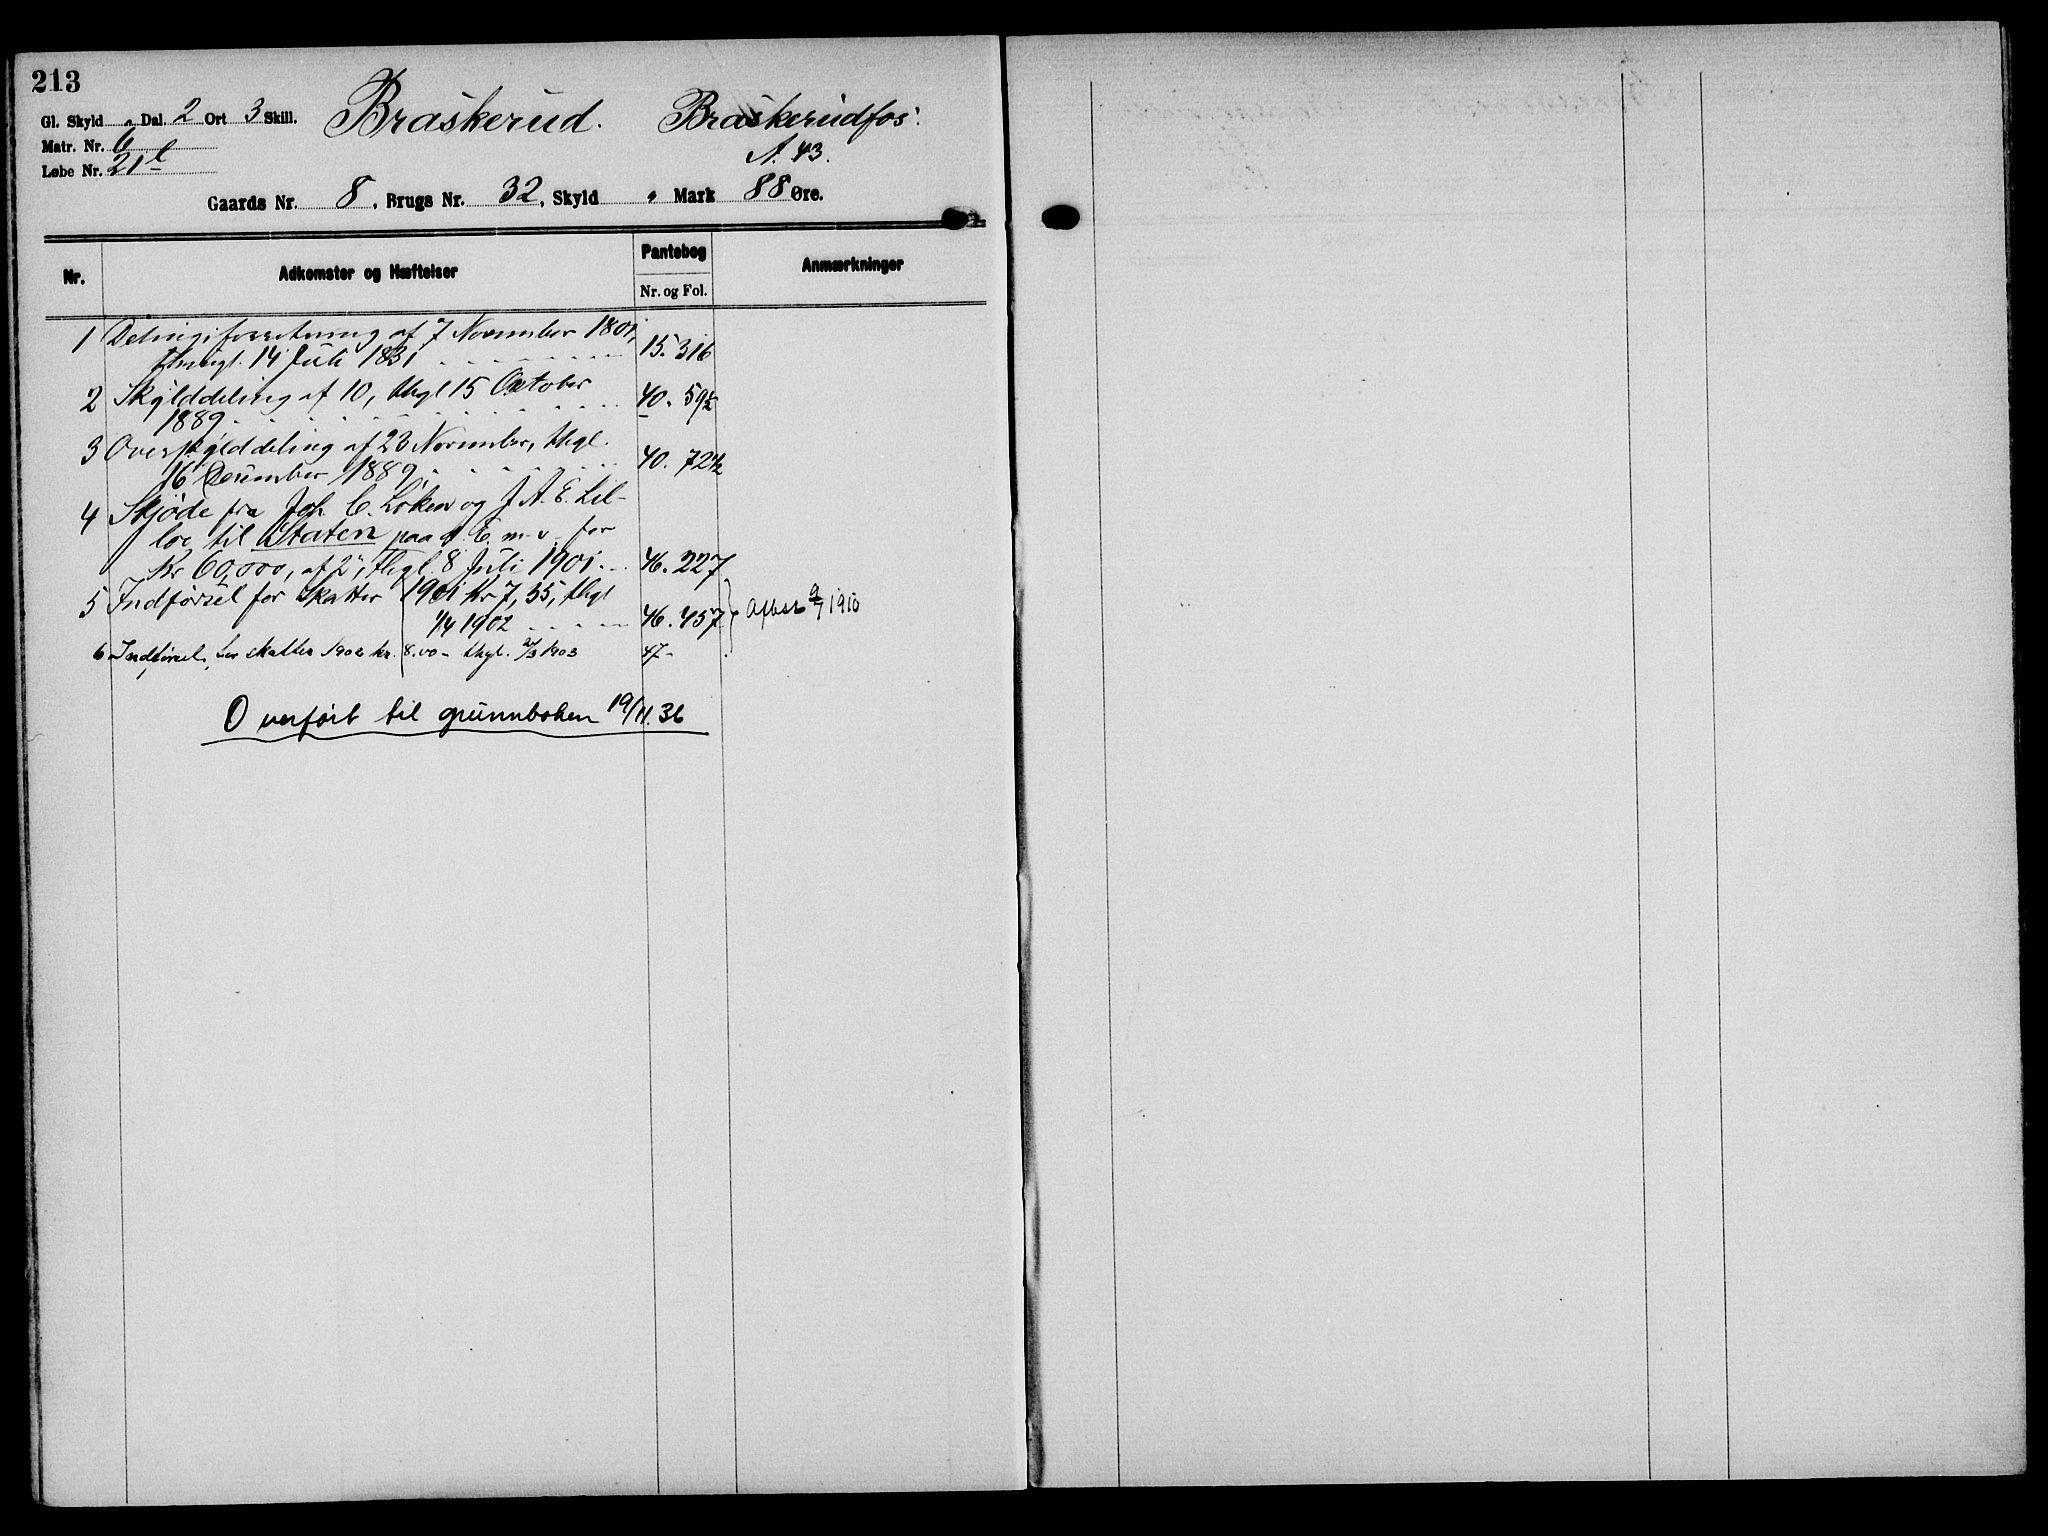 213
Gl. Skyld " Dal. 2 Ort 3 Skill. Braskerud. Braskerudfos.
Matr. Nr. 6
A. 43.
Løbe Nr. 21 l
Gaards Nr. 8, Brugs Nr. 32, Skyld " Mark 88 Øre.
Nr. Adkomster og Hæftelser Pantebog Anmærkninger
Nr. og Fol.
1 Delingsforretning af 7 November 1801,
thingl. 14 Juli 1831 15. 316
2 Skylddeling af 10, thgl 15 October
1889 40. 592
3 Overskylddeling af 23 November, thgl.
16 December 1889 40. 72
4 Skjøde fra Joh. C. Løken og J. A. E. Lil-
loe til Staten paa d. E. m. v. for
Kr 60,000, af 2, thgl. 8 Juli 1901 46. 227
5 Indførsel for Skatter 1901 Kr 7,55, thgl
1/4 1902 46. 457 Aflæst 9/7 1910
6 Indførsel for skatter 1902 kr. 8.00 - thgl. 27/3 1903 47-
Overført til grunnboken 19/11.36